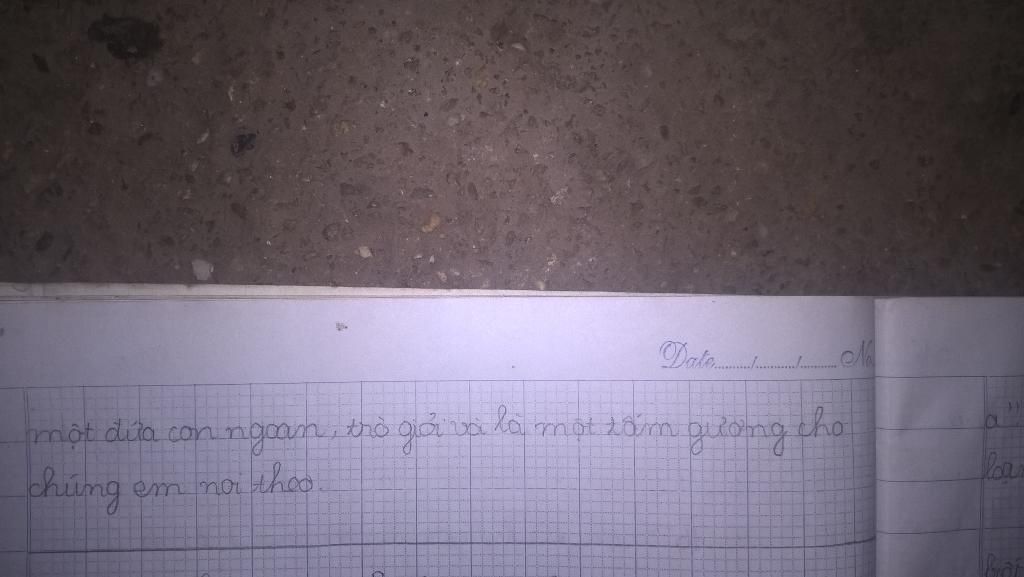 Date ...../...../..... No
một đứa con ngoan, trò giỏi và là một tấm gương cho
chúng em noi theo.
a"